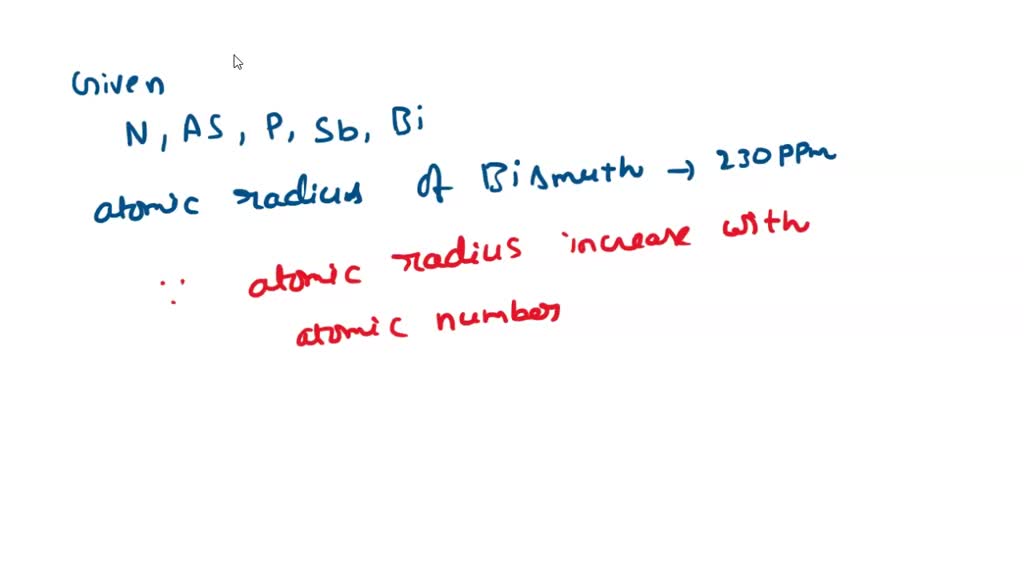 Given
N, AS, P, Sb, Bi
atomic radius of Bismuth → 230 PPm
∵ atomic radius increase with
atomic number